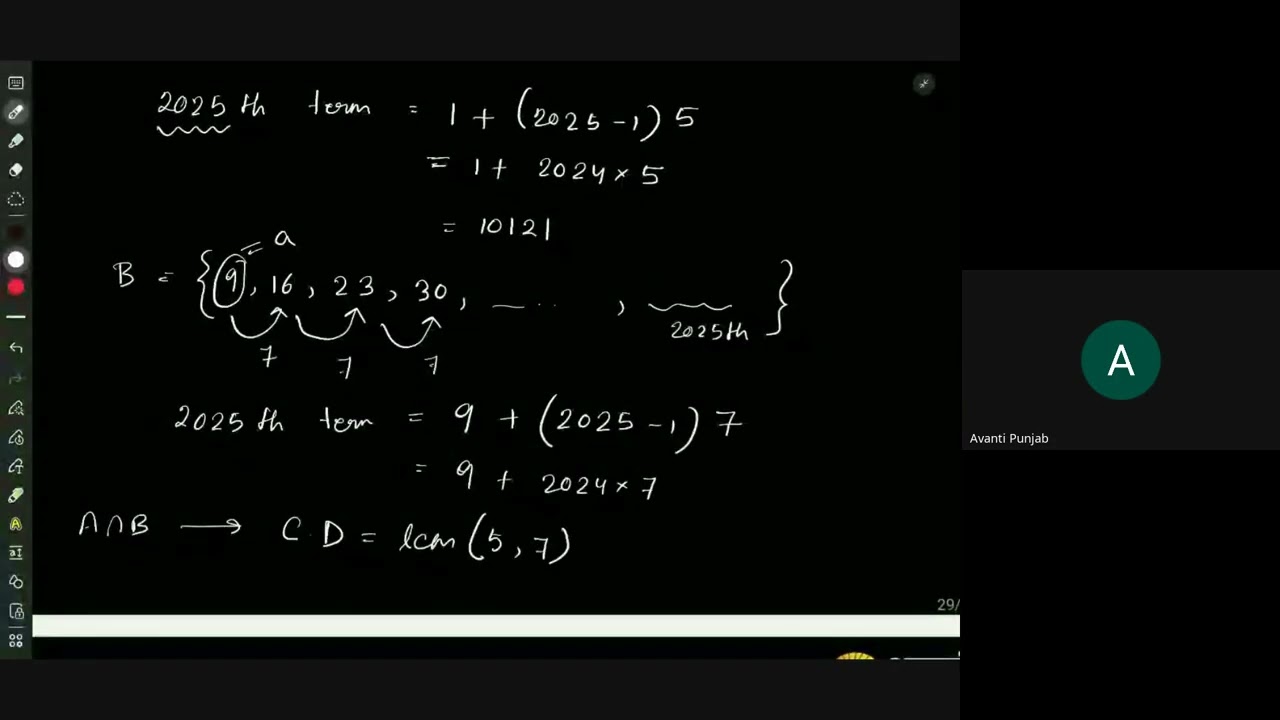 2025th term = 1 + (2025 - 1) 5
= 1 + 2024 × 5
= 10121
a
B = {9, 16, 23, 30, ..... , }
2025th
7 7 7
2025th term = 9 + (2025 - 1) 7
= 9 + 2024 × 7
A∩B → C.D = lcm (5, 7)
29/
A
Avanti Punjab